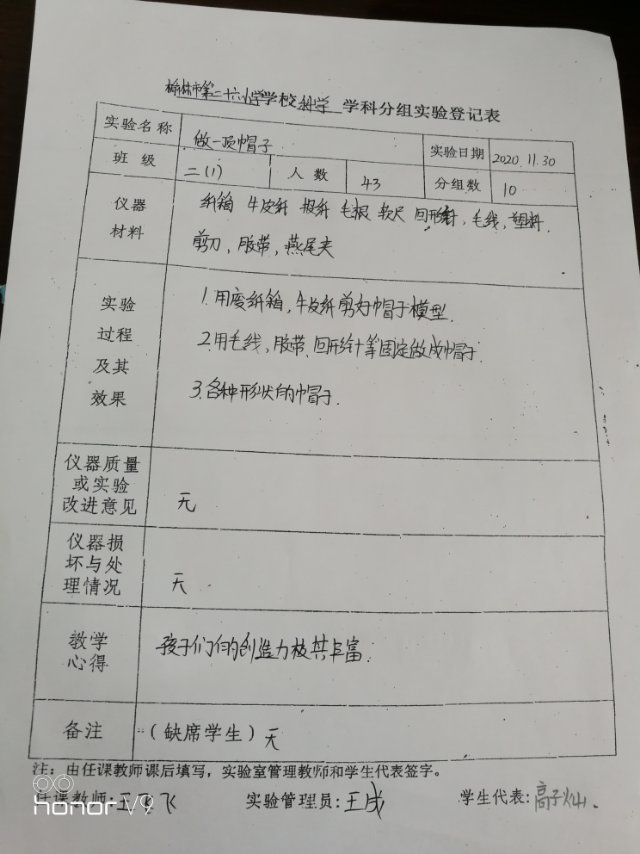 榆林市第二十六小学学校科学学科分组实验登记表
实验名称 做一顶帽子 实验日期 2020.11.30
班级 二(1) 人数 43 分组数 10
仪器材料 纸箱 牛皮纸 报纸 毛根 软尺 回形针,毛线,塑料,
剪刀,胶带,燕尾夹
实验过程及其效果 1.用废纸箱,牛皮纸剪为帽子模型.
2.用毛线,胶带.回形针等固定做成帽子.
3.各种形状的帽子.
仪器质量或实验改进意见 无
仪器损坏与处理情况 无
教学心得 孩子们的创造力极其丰富.
备注 (缺席学生)无
注:由任课教师课后填写,实验室管理教师和学生代表签字。
任课教师:王飞飞 实验管理员:王成 学生代表:高子
honor V9